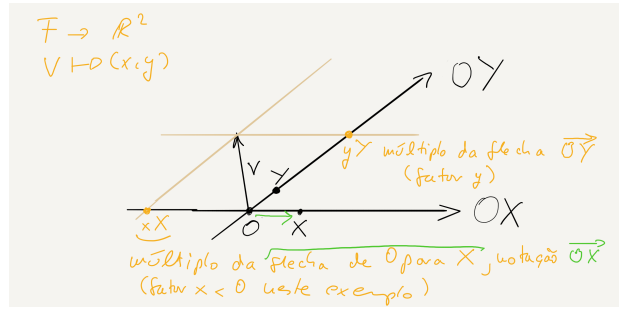 F → ℝ²
V ↦ (x,y)
OY
yY múltiplo da flecha OY
(fator y)
V
Y
OX
xX
O
X
múltiplo da flecha de O para X, notação OX
(fator x < 0 neste exemplo)